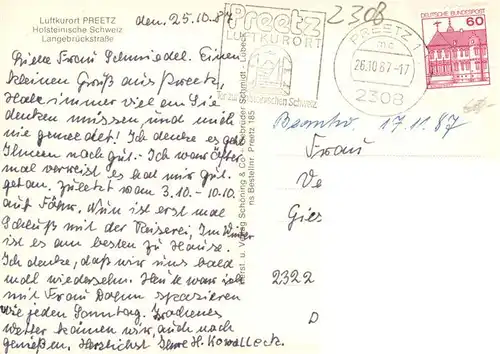 Luftkurort PREETZ
Holsteinische Schweiz
Langebrückstraße
den, 25.10.87
Liebe Frau Schmiedel. Einen
kleinen Gruß aus Preetz,
Habe immer viel an Sie
denken müssen, und mich
nie gemeldet! Ich denke es geht
Ihnen noch gut. Ich war öfter
mal verreist es hat mir gut
getan. Zuletzt vom 3.10.-10.10.
auf Föhr. Nun ist erst mal
Schluß mit der Reiserei, Im Winter
ist es am besten zu Hause.
Ich denke, daß wir uns bald
mal wiedersehn. Heute war ich
mit Frau Dahm spazieren
wie jeden Sonntag.
Wetter können wir, auch noch
genießen. Herzlichst Ihre H. Kowalleck.
Herst. u. Verlag Schöning & Co + Gebrüder Schmidt, Lübeck
Bestellnr. Preetz 185
Preetz
LUFTKURORT
Holsteinischen Schweiz
2308
PREETZ 1
mc
26.10.87-17
2308
DEUTSCHE BUNDESPOST
60
17.11.87
Frau
Ve
Gies
2322
D